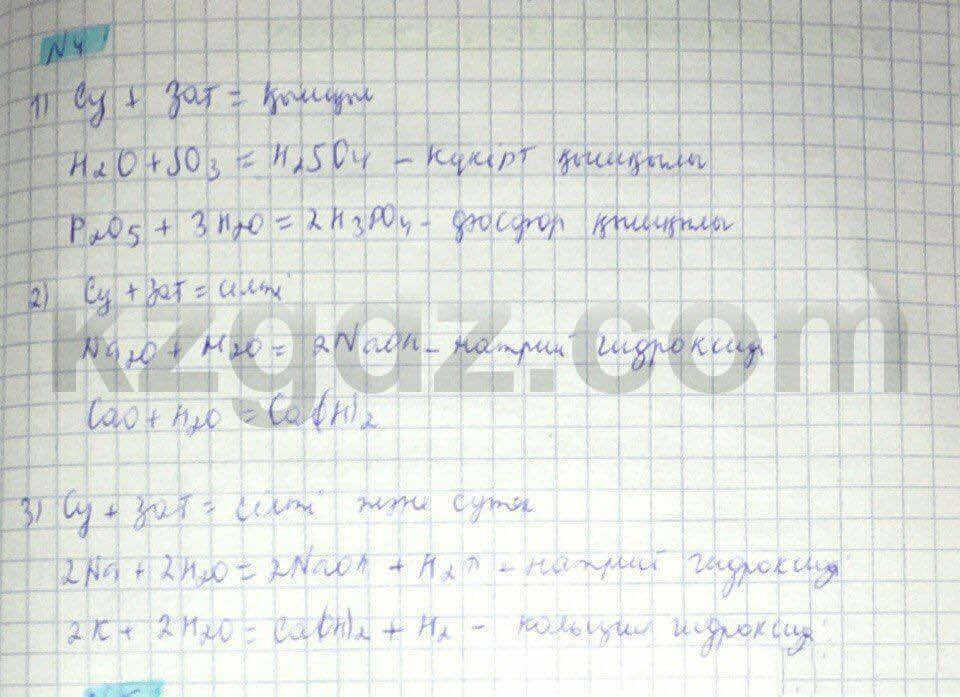 N4
1) Су + зат = қышқыл
H₂O + SO₃ = H₂SO₄ - күкірт қышқылы
P₂O₅ + 3H₂O = 2H₃PO₄ - фосфор қышқылы
2) Су + зат = сілті
Na₂O + H₂O = 2NaOH - натрий гидроксиді
CaO + H₂O = Ca(H)₂
3) Су + зат = сілті және сутек
2Na + 2H₂O = 2NaOH + H₂↑ - натрий гидроксиді
2K + 2H₂O = Ca(H)₂ + H₂ - кальций гидроксиді
kzgaz.com